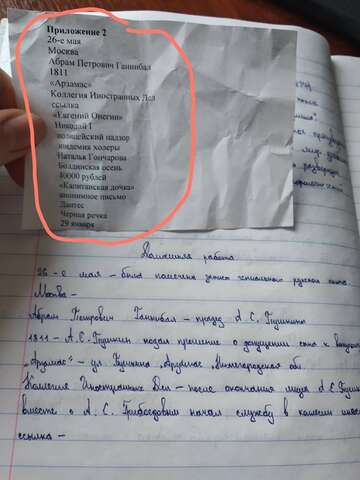 Приложение 2
26-е мая
Москва
Абрам Петрович Ганнибал
1811
«Арзамас»
Коллегия Иностранных Дел
ссылка
«Евгений Онегин»
Николай I
полицейский надзор
эпидемия холеры
Наталья Гончарова
Болдинская осень
40000 рублей
«Капитанская дочка»
анонимное письмо
Дантес
Черная речка
29 января
Домашняя работа
26-е мая – была помечена запись гениального русского поэта.
Москва –
Абрам Петрович Ганнибал – прадед А.С. Пушкина
1811 – А.С. Пушкин подал прошение о допущении его к
„Арзамас" – ул. Пушкина, Арзамас, Нижегородская об
Коллегия Иностранных Дел – после окончания лицея А.С. Пушк
вместе с А.С. Грибоедовым начал службу в коллегии инос
ссылка –